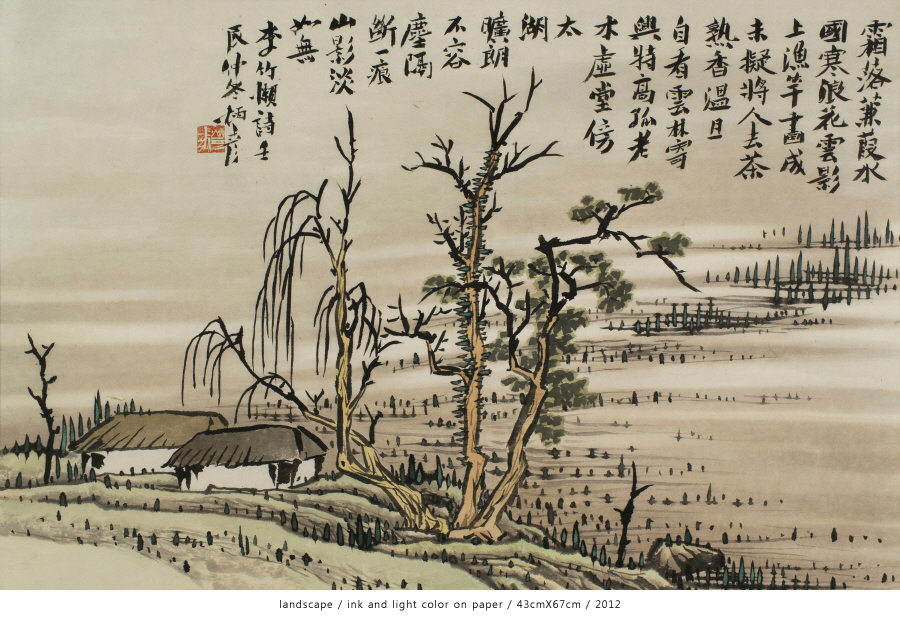 霜落蒹葭水
國寒浪花雲影
上漁竿畵成
未擬將人去茶
熟香溫且
自看雲林寄
興特高孤老
木虛堂傍
太
湖
曠朗
不容
塵隔
斷一痕
山影淡
如無
李竹懶詩壬
辰仲冬
landscape / ink and light color on paper / 43cmX67cm / 2012